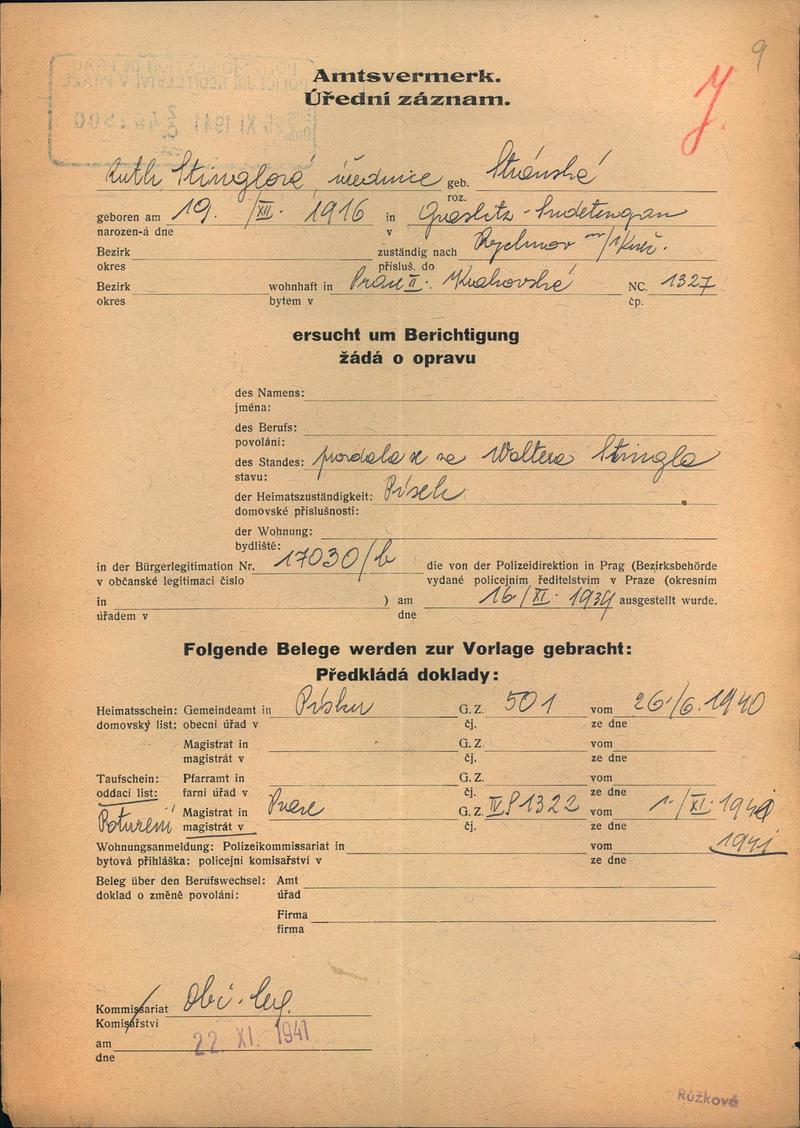 9
Amtsvermerk.
Úřední záznam.
J.
Ruth Stinglová, úřednice geb. Stránská
roz.
geboren am 19. /XII. 1916 in Graslitz - Sudetengau
narozen-á dne v
Bezirk zuständig nach Rychnov n/Kněž.
okres přísluš. do
Bezirk wohnhaft in Prag II. Krakovská NC. 1327
okres bytem v čp.
ersucht um Berichtigung
žádá o opravu
des Namens:
jména:
des Berufs:
povolání:
des Standes: provdala se za Waltera Stingla
stavu:
der Heimatszuständigkeit: Písek
domovské příslušnosti:
der Wohnung:
bydliště:
in der Bürgerlegitimation Nr. 17030/b die von der Polizeidirektion in Prag (Bezirksbehörde
v občanské legitimaci číslo vydané policejním ředitelstvím v Praze (okresním
in ) am 16/XI. 1939 ausgestellt wurde.
úřadem v dne
Folgende Belege werden zur Vorlage gebracht:
Předkládá doklady:
Heimatsschein: Gemeindeamt in Písku G. Z. 501 vom 26./6. 1940
domovský list: obecní úřad v čj. ze dne
Magistrat in G. Z. vom
magistrát v čj. ze dne
Taufschein: Pfarramt in G. Z. vom
oddací list: farní úřad v čj. ze dne
Potvrzení Magistrat in Praze G. Z. IV 81322 vom 1./XI. 1941
magistrát v čj. ze dne 1941
Wohnungsanmeldung: Polizeikommissariat in vom
bytová přihláška: policejní komisařství v ze dne
Beleg über den Berufswechsel: Amt
doklad o změně povolání: úřad
Firma
firma
Kommissariat Obč. leg.
Komisařství
am 22. XI. 1941
dne
Růžková